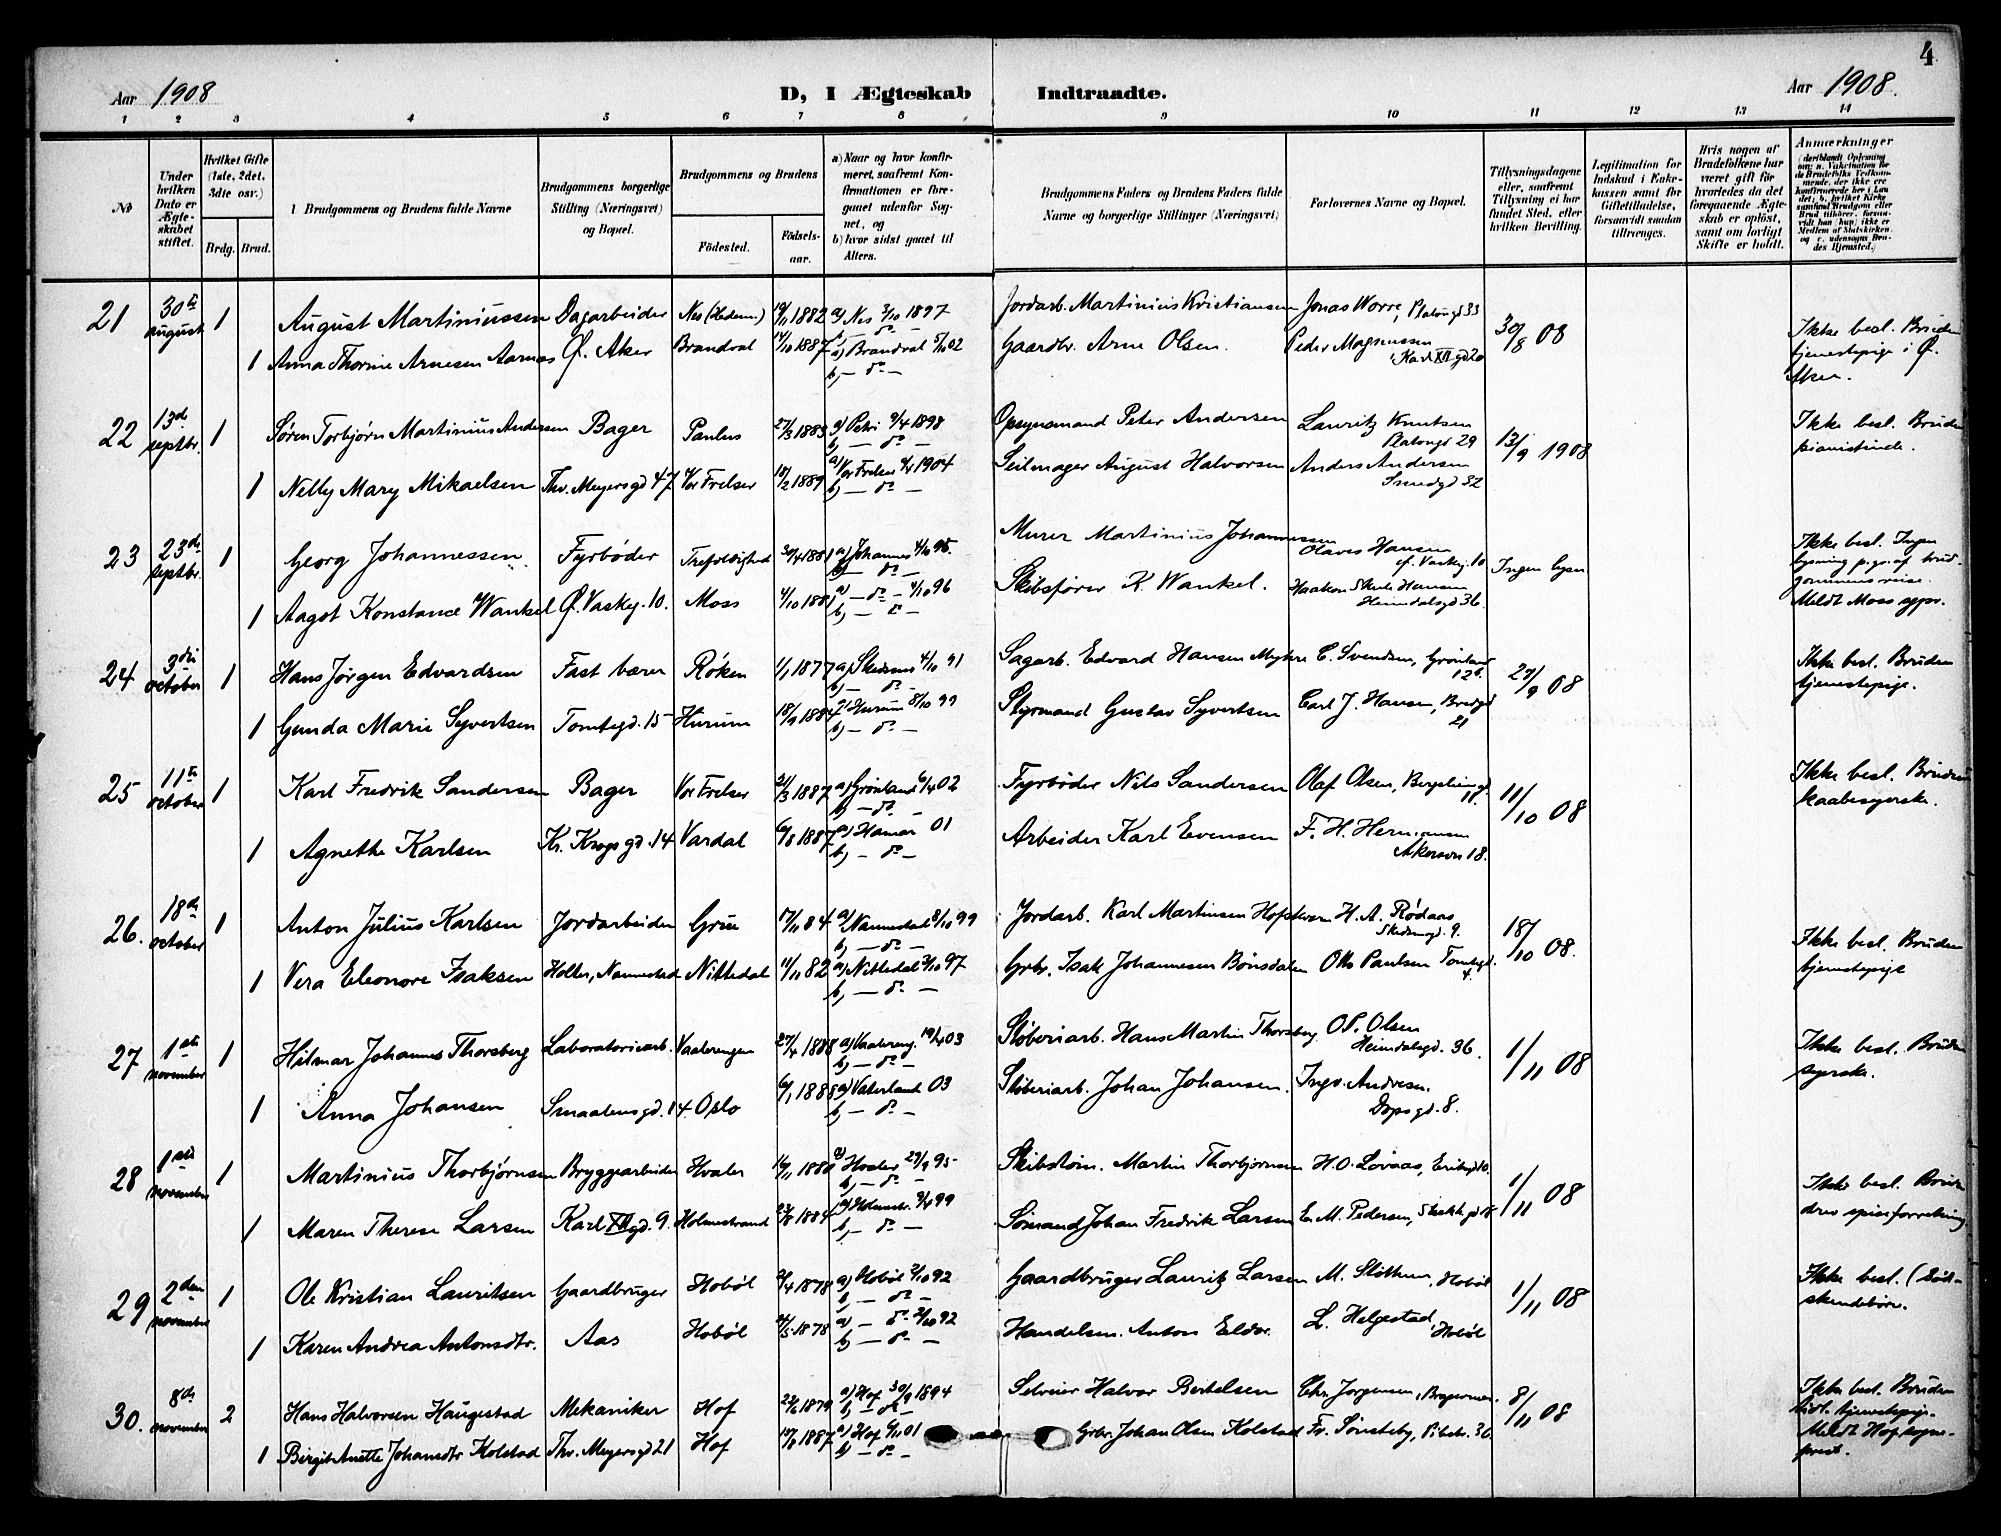 4
Aar 1908
D, I Ægteskab Indtraadte.
Aar 1908.
1 2 3 4 5 6 7 8 9 10 11 12 13 14
No
Under hvilken Dato er Ægteskabet stiftet.
Hvilket Gifte (1ste, 2det, 3dte osv.)
Brdg. Brud.
Brudgommens og Brudens fulde Navne
Brudgommens borgerlige Stilling (Næringsvei) og Bopæl.
Brudgommens og Brudens
Födested.
Födselsaar.
a) Naar og hvor konfirmeret, saafremt Konfirmationen er foregaaet udenfor Sognet, og
b) hvor sidst gaaet til Alters.
Brudgommens Faders og Brudens Faders fulde Navne og borgerlige Stillinger (Næringsvei)
Forlovernes Navne og Bopæl.
Tillysningsdagene eller, saafremt Tillysning ei har fundet Sted, efter hvilken Bevilling.
Legitimation for Indskud i Enkekassen samt for Giftetilladelse, forsaavidt saadan tiltrænges.
Hvis nogen af Brudefolkene har været gift før hvorledes da det foregaaende Ægteskab er oplöst, samt om lovligt Skifte er holdt.
Anmærkninger
21 30te august 1 August Martiniussen Dagarbeider Nes (Hedem.) 19/11 1882 a) Nes 3/10 1897 Jordarb. Martinius Kristiansen Jonas Worre, Platousgd 33 30/8 08 Ikke besl. Bruden tjenestepige i Ø. Aker.
1 Anna Thorine Arnesen Aarnæs Ø. Aker Brandval 14/10 1887 a) Brandval 5/10 02 b, — do — Gaardbr. Arne Olsen. Peder Magnussen Karl XII gd 20
22 13de septbr. 1 Søren Torbjørn Martinius Andersen Bager Paulus 27/3 1883 a) Petri 9/4 1898 b, — do — Opsynsmand Peter Andersen Lauritz Knutsen Platougd 29 13/9 1908 Ikke besl. Bruden pianistinde.
1 Nelly Mary Mikaelsen Thv. Meyersgd 47 Vor Frelser 18/2 1889 a) Vor Frelser 1904 b) — do — Seilmager August Halvorsen Anders Andersen Smedgd 32
23 23de septbr. 1 Georg Johannessen Fyrbøder Trefoldighed 30/4 1881 a) Johannes 4/10 95. b) — do — Murer Martinius Johannessen Olaves Hansen Ø. Vaskeg. 10 Ingen lysn. Ikke besl. Ingen lysning p. gr. af brudgommens reise. Meldt Moss sgpr.
1 Aagot Konstance Wankel Ø. Vaskeg. 10. Moss 4/10 1881 a) — do — 4/10 96 b, — do — Skibsfører K. Wankel. Haakon Skule Hansen Heimdalsgd 36.
24 3die october 1 Hans Jørgen Edvardsen Fast bærer Røken 1/1 1877 a, 4/10 91 b, — do — Sagarb. Edvard Hansen Myhre C. Svendsen, Grønland 12 b. 27/9 08 Ikke besl. Bruden tjenestepige.
1 Gunda Marie Syvertsen Tomtegd. 15 Hurum 18/9 1884 a) Hurum 8/10 99 b) — do — Styrmand Gustav Syvertsen Carl J. Hansen, Bredgd 21
25 11te october 1 Karl Fredrik Sandersen Bager Vor Frelser 21/3 1887 a) Grønland 6/4 02 b) — do — Fyrbøder Nils Sandersen Olaf Olsen, 11/10 08 Ikke besl. Bruden kaabesyerske.
1 Agnethe Karlsen Kr. Krogs gd. 14 Vardal 6/8 1887 a) Hamar 01 b, — do — Arbeider Karl Evensen F. H. Hermansen Akersvn 18.
26. 18de october 1 Anton Julius Karlsen Jordarbeider Grue 17/11 84 a) Nannestad 8/10 99 b, — do — Jordarb. Karl Martinsen H. A. Rødaas 9. 18/10 08. Ikke besl. Bruden tjenestepige
1 Vera Eleonore Isaksen Holter, Nannestad Nittedal 11/11 82 a) Nittedal 3/10 97 b, — do — Grbr. Isak Johannesen Bønsdalen Otto Paulsen Tomtegd. 4.
27 1ste november 1 Hilmar Johannes Thorsberg Laboratoriearb. Vaalerengen 27/4 1888 a) Vaalereng. 19/4 03 b, — do — Støberiarb. Hans Martin Thorsberg O. P. Olsen Heimdalsgd. 36. 1/11 08 Ikke besl. Bruden syerske.
1 Anna Johansen Smaalensgd. 14 Oslo 6/1 1888 a) Vaterland 03 b, — do — Støberiarb. Johan Johansen. Ingv. Andresen. Dopsgd. 8.
28 1ste november 1 Martinius Thorbjørnsen Bryggearbeider Hvaler 16/11 1880 a) Hvaler 29/9 95 b) — do — Skibstøm. Martin Thorbjørnsen H. O. Lovaas, 1/11 08 Ikke besl. Bruden drev spiseforretning
1 Maren Therese Larsen Karl XII gd. 9. Holmestrand 23/8 1884 a) Holmestr. 9/4 99 b, — do — Sømand Johan Fredrik Larsen E. M. Pedersen,
29 2den november 1 Ole Kristian Lauritsen Gaardbruger Hobøl 2/4 1878 a) Hobøl 2/10 92 b, — do — Gaardbruger Lauritz Larsen M. Slottum, Hobøl 1/11 08 Ikke besl. (Sødskendebörn.
1 Karen Andrea Antonsdtr. Aas Hobøl 1878 a) — do 2/10 92 b) — do — Handelsm. Anton L. Helgestad, Hobøl
30. 8de november 2 Hans Halvorsen Haugestad Mekaniker Hof 22/6 1879 a) Hof 30/9 1894 b, — do — Selveier Halvor Bertelsen Chr. Jorgensen, 8/11 08 Ikke besl. Bruden tidl. tjenestepige. Meldt Hof sogneprest.
1 Birgit Anette Johansdtr Kolstad Thv. Meyersgd 21 Hof 19/8 1887 a) Hof 6/10 01 b) — do — Grbr. Johan Olsen Kolstad Fr. Sønsteby, Pilestr. 30